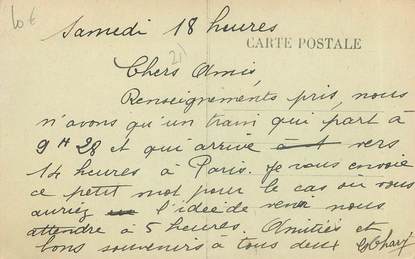 10 €
Samedi 18 heures
CARTE POSTALE
21
Chers Amis,
Renseignements pris, nous
n'avons qu'un train qui part à
9H28 et qui arrive à vers
14 heures à Paris. Je vous envoie
ce petit mot pour le cas où vous
auriez l'idée de venir nous
attendre à 5 heures. Amitiés et
bons souvenirs à tous deux